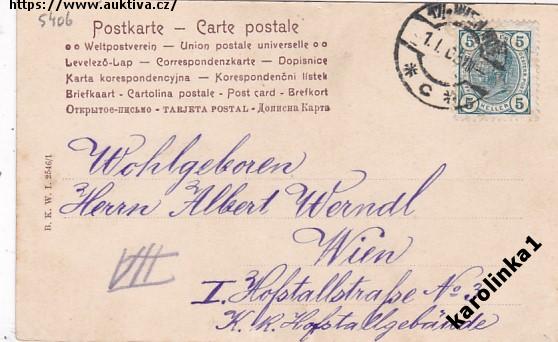 https://www.auktiva.cz/
5406
Postkarte — Carte postale
Weltpostverein — Union postale universelle
Levelező-Lap — Correspondenzkarte — Dopisnice
Karta korespondencyjna — Korespondenční lístek
Briefkaart - Cartolina postale - Post card - Brefkort
Открытое-письмо — TARJETA POSTAL - Дописна Карта
5 5
5 HELLER 5
B. K. W. I. 2546/1
Wohlgeboren
Herrn Albert Werndl
Wien
VII
I. Hofstallstraße No. 3
K. K. Hofstallgebäude
karolinka1